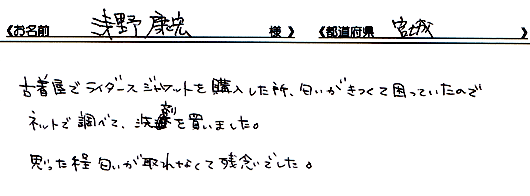 《お名前 浅野康宏 様》 《都道府県 宮城 》
古着屋でライダースジャケットを購入した所、匂いがきつくて困っていたので
ネットで調べて、洗剤を買いました。
思った程匂いが取れなくて残念でした。